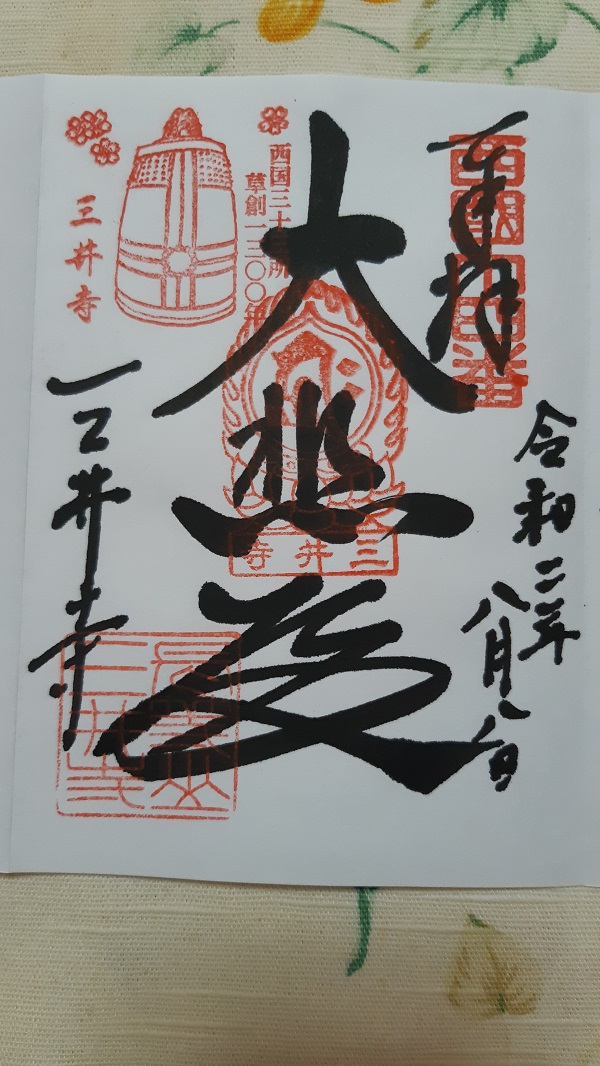 奉拝
西国十四番
令和二年
八月八日
大悲殿
西国三十三所
草創一三〇〇年
三井寺
三井寺
三井寺
長等山
三井寺